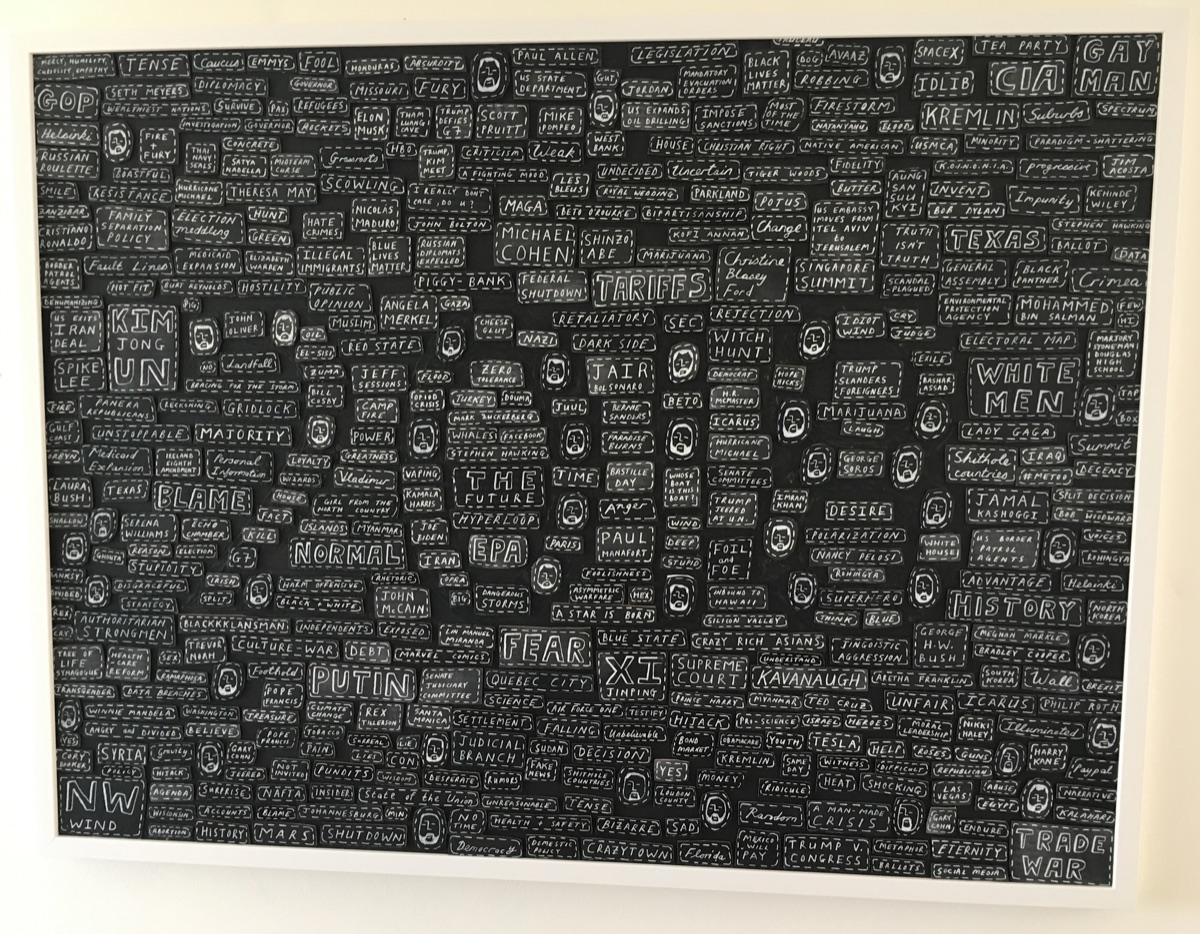 TENSE
Caucus
EMMYS
FOOL
HONDURAS
ABSURDITY
PAUL ALLEN
LEGISLATION
BLACK
LIVES
MATTER
DOG
AVAAZ
SPACEX
TEA PARTY
GAY
MAN
GOP
SETH MEYERS
DIPLOMACY
GOVERNOR
MISSOURI
FURY
US STATE
DEPARTMENT
GUT
JORDAN
MANDATORY
EVACUATION
ORDERS
ROBBING
IDLIB
CIA
WEALTHIEST NATIONS
SURVIVE
PAS
REFUGEES
ELON
MUSK
THAM
LUANG
CAVE
TRUMP
DEFIES
G7
SCOTT
PRUITT
MIKE
POMPEO
US EXPANDS
OIL DRILLING
IMPOSE
SANCTIONS
MOST
OF THE
TIME
FIRESTORM
KREMLIN
Suburbs
SPECTRUM
Helsinki
FIRE
+
FURY
INVESTIGATION
GOVERNOR
ROCKETS
WEST
BANK
NATANYAHU
BLOOD
RUSSIAN
ROULETTE
BOASTFUL
THAI
NAVY
SEALS
CONCRETE
SATYA
NADELLA
MIDTERM
CURSE
Grassroots
HBO
TRUMP
KIM
MEET
CRITICISM
Weak
HOUSE
CHRISTIAN RIGHT
NATIVE AMERICAN
USMCA
MINORITY
PARADIGM-SHATTERING
A FIGHTING MOOD
UNDECIDED
Uncertain
TIGER WOODS
FIDELITY
K.O.I.N.O.N.I.A.
progressive
JIM
ACOSTA
SMILE
RESISTANCE
HURRICANE
MICHAEL
THERESA MAY
SCOWLING
I REALLY DON'T
CARE, DO U?
LES
BLEUS
ROYAL WEDDING
PARKLAND
POTUS
BUTTER
AUNG
SAN
SUU
KYI
INVENT
Impunity
KEHINDE
WILEY
ZANZIBAR
CRISTIANO
RONALDO
FAMILY
SEPARATION
POLICY
ELECTION
meddling
HUNT
GREEN
HATE
CRIMES
NICOLAS
MADURO
JOHN BOLTON
MAGA
BETO O'ROURKE
BIPARTISANSHIP
KOFI ANNAN
Change
US EMBASSY
MOVES FROM
TEL AVIV
to
JERUSALEM
BOB DYLAN
TRUTH
ISN'T
TRUTH
TEXAS
STEPHEN HAWKING
BALLOT
DATA
Fault Lines
MEDICAID
EXPANSION
ELIZABETH
WARREN
ILLEGAL
IMMIGRANTS
BLUE
LIVES
MATTER
RUSSIAN
DIPLOMATS
EXPELLED
MICHAEL
COHEN
SHINZO
ABE
MARIJUANA
Christine
Blasey
Ford
SINGAPORE
SUMMIT
SCANDAL
PLAGUED
GENERAL
ASSEMBLY
BLACK
PANTHER
Crimea
HOT PIT
BURT REYNOLDS
HOSTILITY
PUBLIC
OPINION
PIGGY-BANK
FEDERAL
SHUTDOWN
TARIFFS
DEHUMANIZING
US EXITS
IRAN
DEAL
KIM
JONG
UN
BIG
JOHN
OLIVER
OIL
MUSLIM
ANGELA
MERKEL
GAZA
CHEESE
GLUT
NAZI
RETALIATORY
SEC
REJECTION
IDIOT
WIND
CRY
JUDGE
ENVIRONMENTAL
PROTECTION
AGENCY
MOHAMMED
BIN SALMAN
ELECTORAL MAP
MARJORY
STONEMAN
DOUGLAS
HIGH
SCHOOL
SPIKE
LEE
NO
Landfall
EL-SISI
RED STATE
DARK SIDE
WITCH
HUNT
EXILE
BRACING FOR THE STORM
ZUMA
JEFF
SESSIONS
FLOOD
ZERO
TOLERANCE
JAIR
BOLSONARO
DEMOCRAT
HOPE
HICKS
TRUMP
SLANDERS
FOREIGNERS
BASHAR
ASSAD
WHITE
MEN
FIRE
PANERA
REPUBLICANS
RECKONING
GRIDLOCK
BILL
COSBY
CAMP
FIRE
OPIOD
CRISIS
TURKEY
DOUMA
JUUL
BERNIE
SANDERS
BETO
H.R.
MCMASTER
MARIJUANA
TAP
BOX
GULF
COAST
UNSTOPPABLE
MAJORITY
POWER
MARK ZUCKERBERG
WHALES
FACEBOOK
PARADISE
BURNS
ICARUS
LAUGH
LADY GAGA
Summit
Medicaid
Expansion
IRELAND
EIGHTH
AMENDMENT
Personal
Information
LOYALTY
GREATNESS
STEPHEN HAWKING
HURRICANE
MICHAEL
GEORGE
SOROS
Shithole
countries
IRAQ
#METOO
DECENCY
LAURA
BUSH
TEXAS
BLAME
WIZARDS
Vladimir
VAPING
THE
FUTURE
TIME
BASTILLE
DAY
WHOSE
BOAT
IS THIS
BOAT
SENATE
COMMITTEES
JAMAL
KASHOGGI
SPLIT DECISION
HOUSE
GIRL FROM THE
NORTH COUNTRY
KAMALA
HARRIS
Anger
TRUMP
JEERED
AT U.N.
IMRAN
KHAN
DESIRE
BOB WOODWARD
SHALLOW
SERENA
WILLIAMS
ECHO
CHAMBER
FACT
KILL
ISLANDS
MYANMAR
JOE
BIDEN
HYPERLOOP
WIND
POLARIZATION
WHITE
HOUSE
US BORDER
PATROL
AGENTS
VOICES
GHOUTA
REASON
ELECTION
G-7
NORMAL
IRAN
EPA
PARIS
PAUL
MANAFORT
DEEP
STUPID
FOIL
and
FOE
NANCY PELOSI
ROHINGYA
STUPIDITY
DISGRACEFUL
IRISH
HARM OFFENSIVE
RHETORIC
OPRA
FOOLISHNESS
ROHINGYA
ADVANTAGE
Helsinki
STRATEGY
SPLIT
BLACK + WHITE
JOHN
McCAIN
BIG
DANGEROUS
STORMS
ASYMMETRIC
WARFARE
HEX
INBOUND TO
HAWAII
SUPERHERO
HISTORY
NORTH
KOREA
AUTHORITARIAN
STRONGMEN
BLACKKKLANSMAN
INDEPENDENTS
EXPOSED
LIN MANUEL
MIRANDA
A STAR IS BORN
SILICON VALLEY
THINK
BLUE
TREE OF
LIFE
SYNAGOGUE
HEALTH-
CARE
REFORM
SEX
TREVOR
NOAH
CULTURE-WAR
DEBT
MARVEL COMICS
FEAR
BLUE STATE
CRAZY RICH ASIANS
JINGOISTIC
AGGRESSION
GEORGE
H.W.
BUSH
MEGHAN MARKLE
BRADLEY COOPER
TRANSGENDER
DATA BREACHES
RAMAPHOSA
Foothold
PUTIN
SENATE
JUDICIARY
COMMITTEE
QUEBEC CITY
XI
JINPING
SUPREME
COURT
UNDERSTAND
KAVANAUGH
ARETHA FRANKLIN
SOUTH
KOREA
Wall
BREXIT
WINNIE MANDELA
WASHINGTON
POPE
FRANCIS
SCIENCE
AIR FORCE ONE
TESTIFY
PRINCE HARRY
MYANMAR
TED CRUZ
UNFAIR
ICARUS
PHILIP ROTH
YES
ANGRY and DIVIDED
BELIEVE
TREASURE
CLIMATE
CHANGE
REX
TILLERSON
SANTA
MONICA
SETTLEMENT
FALLING
Unbelievable
HIJACK
PRI-SCIENCE
ISRAEL
HEROES
MORAL
LEADERSHIP
NIKKI
HALEY
Illuminated
CORY
BOOKER
SYRIA
Gravity
GARY
COHN
POPE
FRANCIS
TOBACCO
PAIN
SURREAL
LIES
LIE
CON
JUDICIAL
BRANCH
SUDAN
DECISION
BOND
MARKET
OBAMACARE
YOUTH
TESLA
HELP
ROSES
GUNS
HARRY
KANE
Paypal
POLICY
HIJACK
JEERED
NOT
INVITED
PUNDITS
WISDOM
DESPERATE
RUMORS
FAKE
NEWS
SHITHOLE
COUNTRIES
YES
KREMLIN
SAME
DAY
WITNESS
DIFFICULT
REPUBLICAN
NW
WIND
AGENDA
SURPRISE
NAFTA
INSIDER
State of the Union
UNREASONABLE
TENSE
LOUDON
COUNTY
MONEY
RIDICULE
HEAT
SHOCKING
LAS
VEGAS
ABUSE
EGYPT
NARRATIVE
WISCONSIN
ACCOUNTS
BLAME
JOHANNESBURG
MIN
NO
TIME
HEALTH + SAFETY
BIZARRE
SAD
Random
A MAN-MADE
CRISIS
GARY
COHN
ENDURE
KALAHARI
ABORTION
HISTORY
MARS
SHUTDOWN
Democracy
DOMESTIC
POLICY
CRAZYTOWN
Florida
MEXICO
WILL
PAY
TRUMP V.
CONGRESS
METAPHOR
BALLOTS
ETERNITY
SOCIAL MEDIA
TRADE
WAR